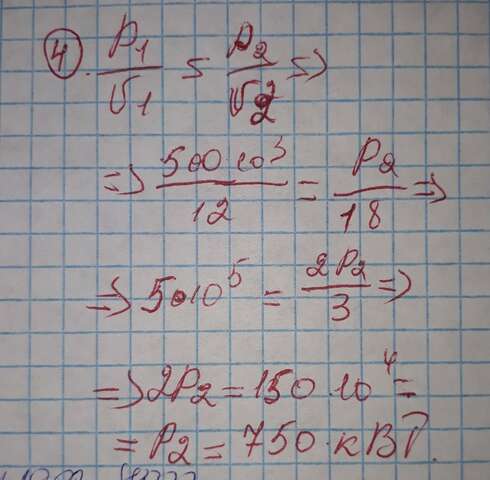 ④ P₁/υ₁ = P₂/υ₂ =>
=> 500·10³/12 = P₂/18 =>
=> 5·10⁵ = 2P₂/3 =>
=> 2P₂ = 150·10⁴ =
= P₂ = 750·кВт.